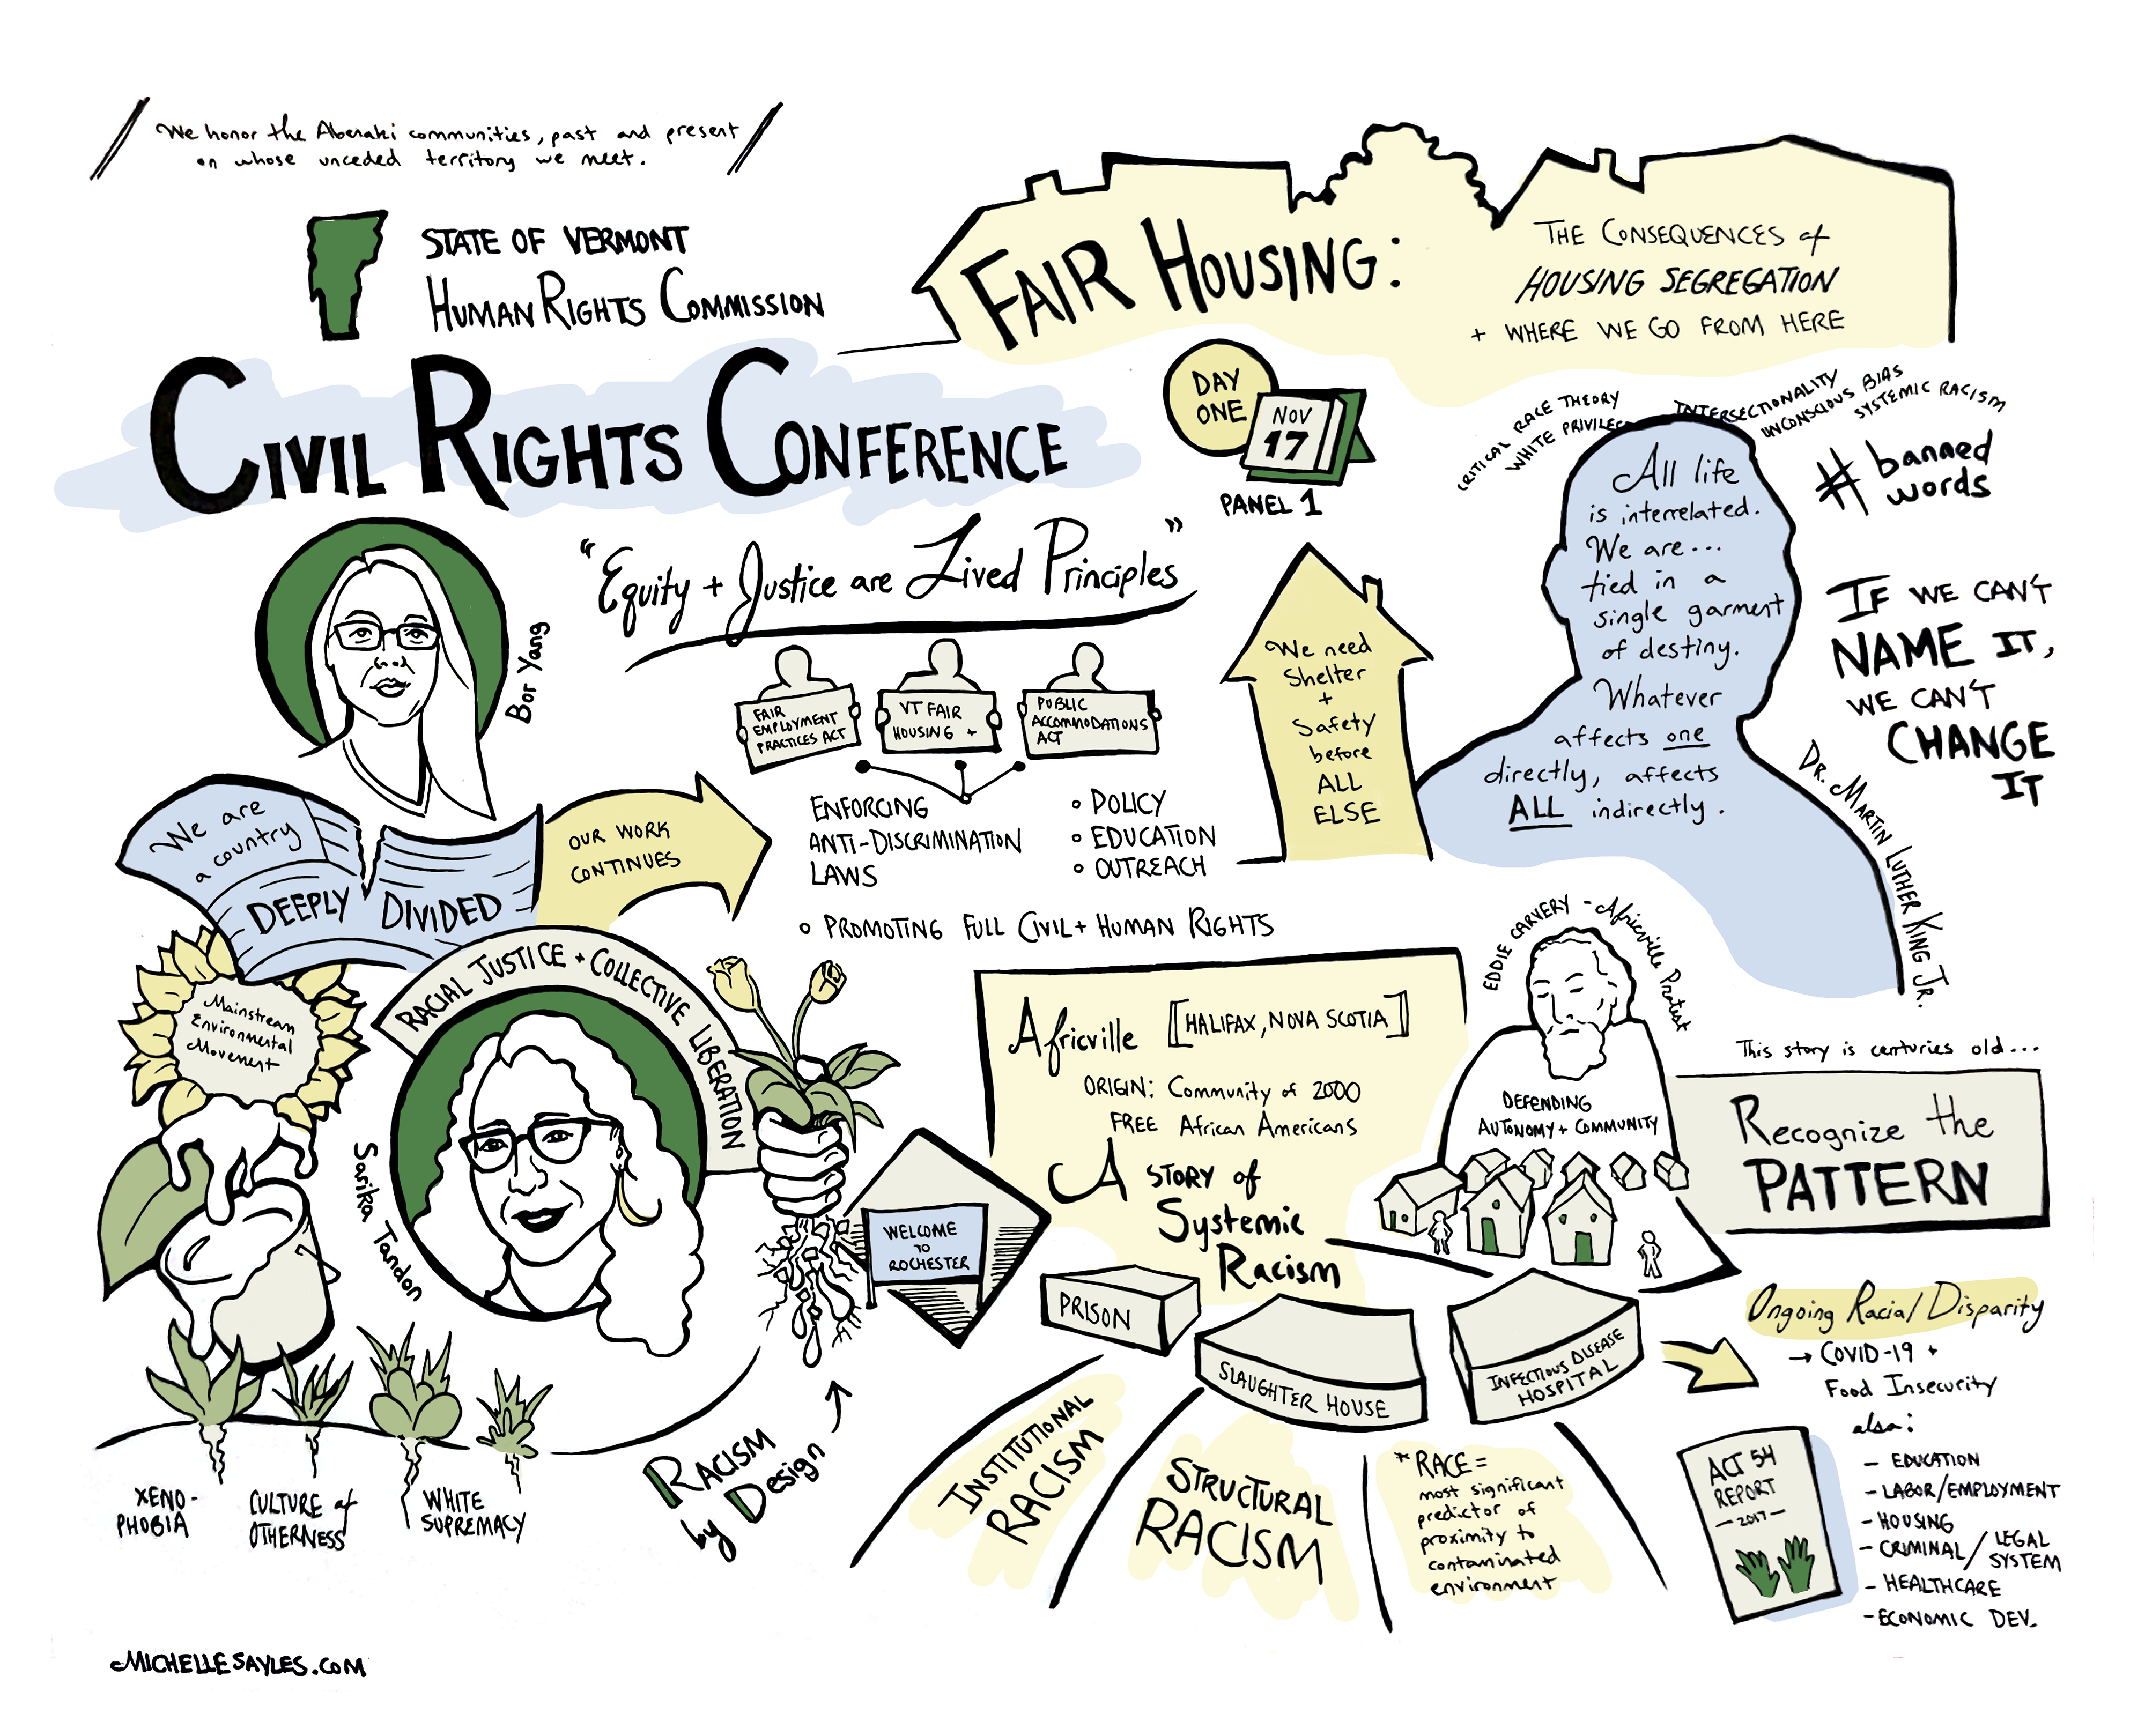 We honor the Abenaki communities, past and present
on whose unceded territory we meet.
STATE OF VERMONT
HUMAN RIGHTS COMMISSION
CIVIL RIGHTS CONFERENCE
FAIR HOUSING:
THE CONSEQUENCES of
HOUSING SEGREGATION
+ WHERE WE GO FROM HERE
DAY
ONE
NOV
17
PANEL 1
"Equity + Justice are Lived Principles"
Bor Yang
FAIR
EMPLOYMENT
PRACTICES ACT
VT FAIR
HOUSING +
PUBLIC
ACCOMMODATIONS
ACT
ENFORCING
ANTI-DISCRIMINATION
LAWS
POLICY
EDUCATION
OUTREACH
PROMOTING FULL CIVIL + HUMAN RIGHTS
We are
a country
DEEPLY DIVIDED
OUR WORK
CONTINUES
We need
Shelter
+
Safety
before
ALL
ELSE
CRITICAL RACE THEORY
WHITE PRIVILEG
INTERSECTIONALITY
UNCONSCIOUS BIAS
SYSTEMIC RACISM
# banned
words
All life
is interrelated.
We are...
tied in a
single garment
of destiny.
Whatever
affects one
directly, affects
ALL indirectly.
DR. MARTIN LUTHER KING JR.
IF WE CAN'T
NAME IT,
WE CAN'T
CHANGE
IT
Mainstream
Environmental
Movement
RACIAL JUSTICE + COLLECTIVE LIBERATION
Sarika Tandon
XENO-
PHOBIA
CULTURE of
OTHERNESS
WHITE
SUPREMACY
RACISM
by Design
WELCOME
TO
ROCHESTER
Africville [HALIFAX, NOVA SCOTIA]
ORIGIN: Community of 2000
FREE African Americans
A STORY of
Systemic
Racism
EDDIE CARVERY - Africville Protest
DEFENDING
AUTONOMY + COMMUNITY
PRISON
SLAUGHTER HOUSE
INFECTIOUS DISEASE
HOSPITAL
INSTITUTIONAL
RACISM
STRUCTURAL
RACISM
* RACE =
most significant
predictor of
proximity to
contaminated
environment
This story is centuries old...
Recognize the
PATTERN
Ongoing Racial Disparity
→ COVID-19 +
Food Insecurity
also:
- EDUCATION
- LABOR/EMPLOYMENT
- HOUSING
- CRIMINAL/LEGAL
SYSTEM
- HEALTHCARE
- ECONOMIC DEV.
ACT 54
REPORT
- 2017 -
MICHELLESAYLES.COM